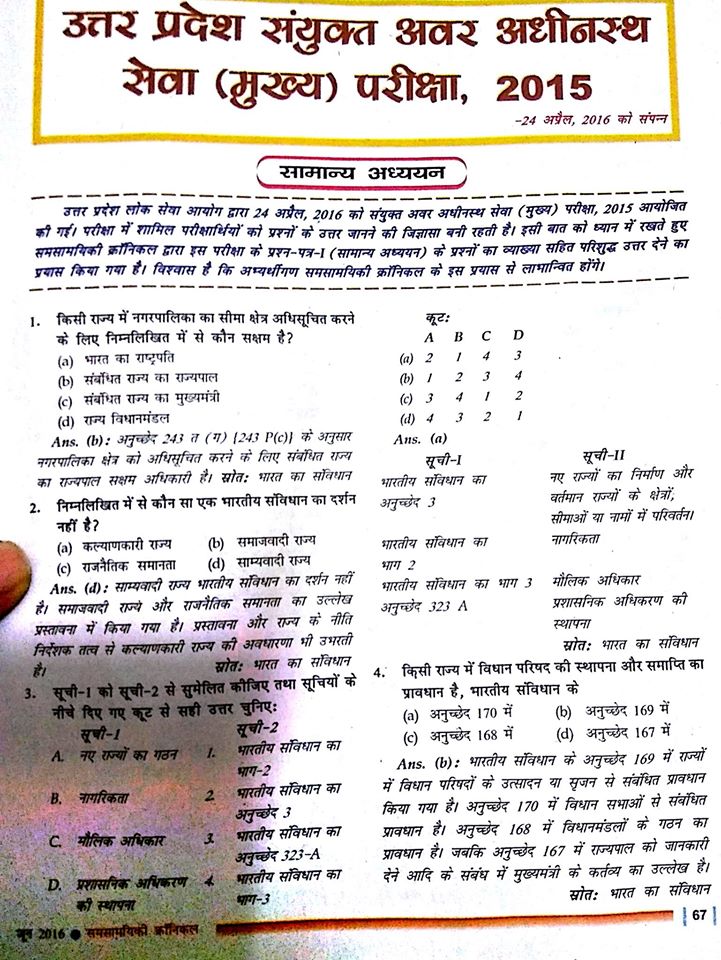 उत्तर प्रदेश संयुक्त अवर अधीनस्थ
सेवा (मुख्य) परीक्षा, 2015
-24 अप्रैल, 2016 को संपन्न
सामान्य अध्ययन
उत्तर प्रदेश लोक सेवा आयोग द्वारा 24 अप्रैल, 2016 को संयुक्त अवर अधीनस्थ सेवा (मुख्य) परीक्षा, 2015 आयोजित
की गई। परीक्षा में शामिल परीक्षार्थियों को प्रश्नों के उत्तर जानने की जिज्ञासा बनी रहती है। इसी बात को ध्यान में रखते हुए
समसामयिकी क्रॉनिकल द्वारा इस परीक्षा के प्रश्न-पत्र-I (सामान्य अध्ययन) के प्रश्नों का व्याख्या सहित परिशुद्ध उत्तर देने का
प्रयास किया गया है। विश्वास है कि अभ्यर्थीगण समसामयिकी क्रॉनिकल के इस प्रयास से लाभान्वित होंगे।
1. किसी राज्य में नगरपालिका का सीमा क्षेत्र अधिसूचित करने
के लिए निम्नलिखित में से कौन सक्षम है?
(a) भारत का राष्ट्रपति
(b) संबंधित राज्य का राज्यपाल
(c) संबंधित राज्य का मुख्यमंत्री
(d) राज्य विधानमंडल
Ans. (b): अनुच्छेद 243 त (ग) {243 P(c)} के अनुसार
नगरपालिका क्षेत्र को अधिसूचित करने के लिए संबंधित राज्य
का राज्यपाल सक्षम अधिकारी है। स्रोत: भारत का संविधान
2. निम्नलिखित में से कौन सा एक भारतीय संविधान का दर्शन
नहीं है?
(a) कल्याणकारी राज्य (b) समाजवादी राज्य
(c) राजनैतिक समानता (d) साम्यवादी राज्य
Ans. (d): साम्यवादी राज्य भारतीय संविधान का दर्शन नहीं
है। समाजवादी राज्य और राजनैतिक समानता का उल्लेख
प्रस्तावना में किया गया है। प्रस्तावना और राज्य के नीति
निर्देशक तत्व से कल्याणकारी राज्य की अवधारणा भी उभरती
है। स्रोत: भारत का संविधान
3. सूची-1 को सूची-2 से सुमेलित कीजिए तथा सूचियों के
नीचे दिए गए कूट से सही उत्तर चुनिए:
सूची-1 सूची-2
A. नए राज्यों का गठन 1. भारतीय संविधान का
भाग-2
B. नागरिकता 2. भारतीय संविधान का
अनुच्छेद 3
C. मौलिक अधिकार 3. भारतीय संविधान का
अनुच्छेद 323-A
D. प्रशासनिक अधिकरण 4. भारतीय संविधान का
की स्थापना भाग-3
कूट:
A B C D
(a) 2 1 4 3
(b) 1 2 3 4
(c) 3 4 1 2
(d) 4 3 2 1
Ans. (a)
सूची-I सूची-II
भारतीय संविधान का नए राज्यों का निर्माण और
अनुच्छेद 3 वर्तमान राज्यों के क्षेत्रों,
सीमाओं या नामों में परिवर्तन।
भारतीय संविधान का नागरिकता
भाग 2
भारतीय संविधान का भाग 3 मौलिक अधिकार
अनुच्छेद 323 A प्रशासनिक अधिकरण की
स्थापना
स्रोत: भारत का संविधान
4. किसी राज्य में विधान परिषद की स्थापना और समाप्ति का
प्रावधान है, भारतीय संविधान के
(a) अनुच्छेद 170 में (b) अनुच्छेद 169 में
(c) अनुच्छेद 168 में (d) अनुच्छेद 167 में
Ans. (b): भारतीय संविधान के अनुच्छेद 169 में राज्यों
में विधान परिषदों के उत्सादन या सृजन से संबंधित प्रावधान
किया गया है। अनुच्छेद 170 में विधान सभाओं से संबंधित
प्रावधान है। अनुच्छेद 168 में विधानमंडलों के गठन का
प्रावधान है। जबकि अनुच्छेद 167 में राज्यपाल को जानकारी
देने आदि के संबंध में मुख्यमंत्री के कर्तव्य का उल्लेख है।
स्रोत: भारत का संविधान
जून 2016 ● समसामयिकी क्रॉनिकल
67